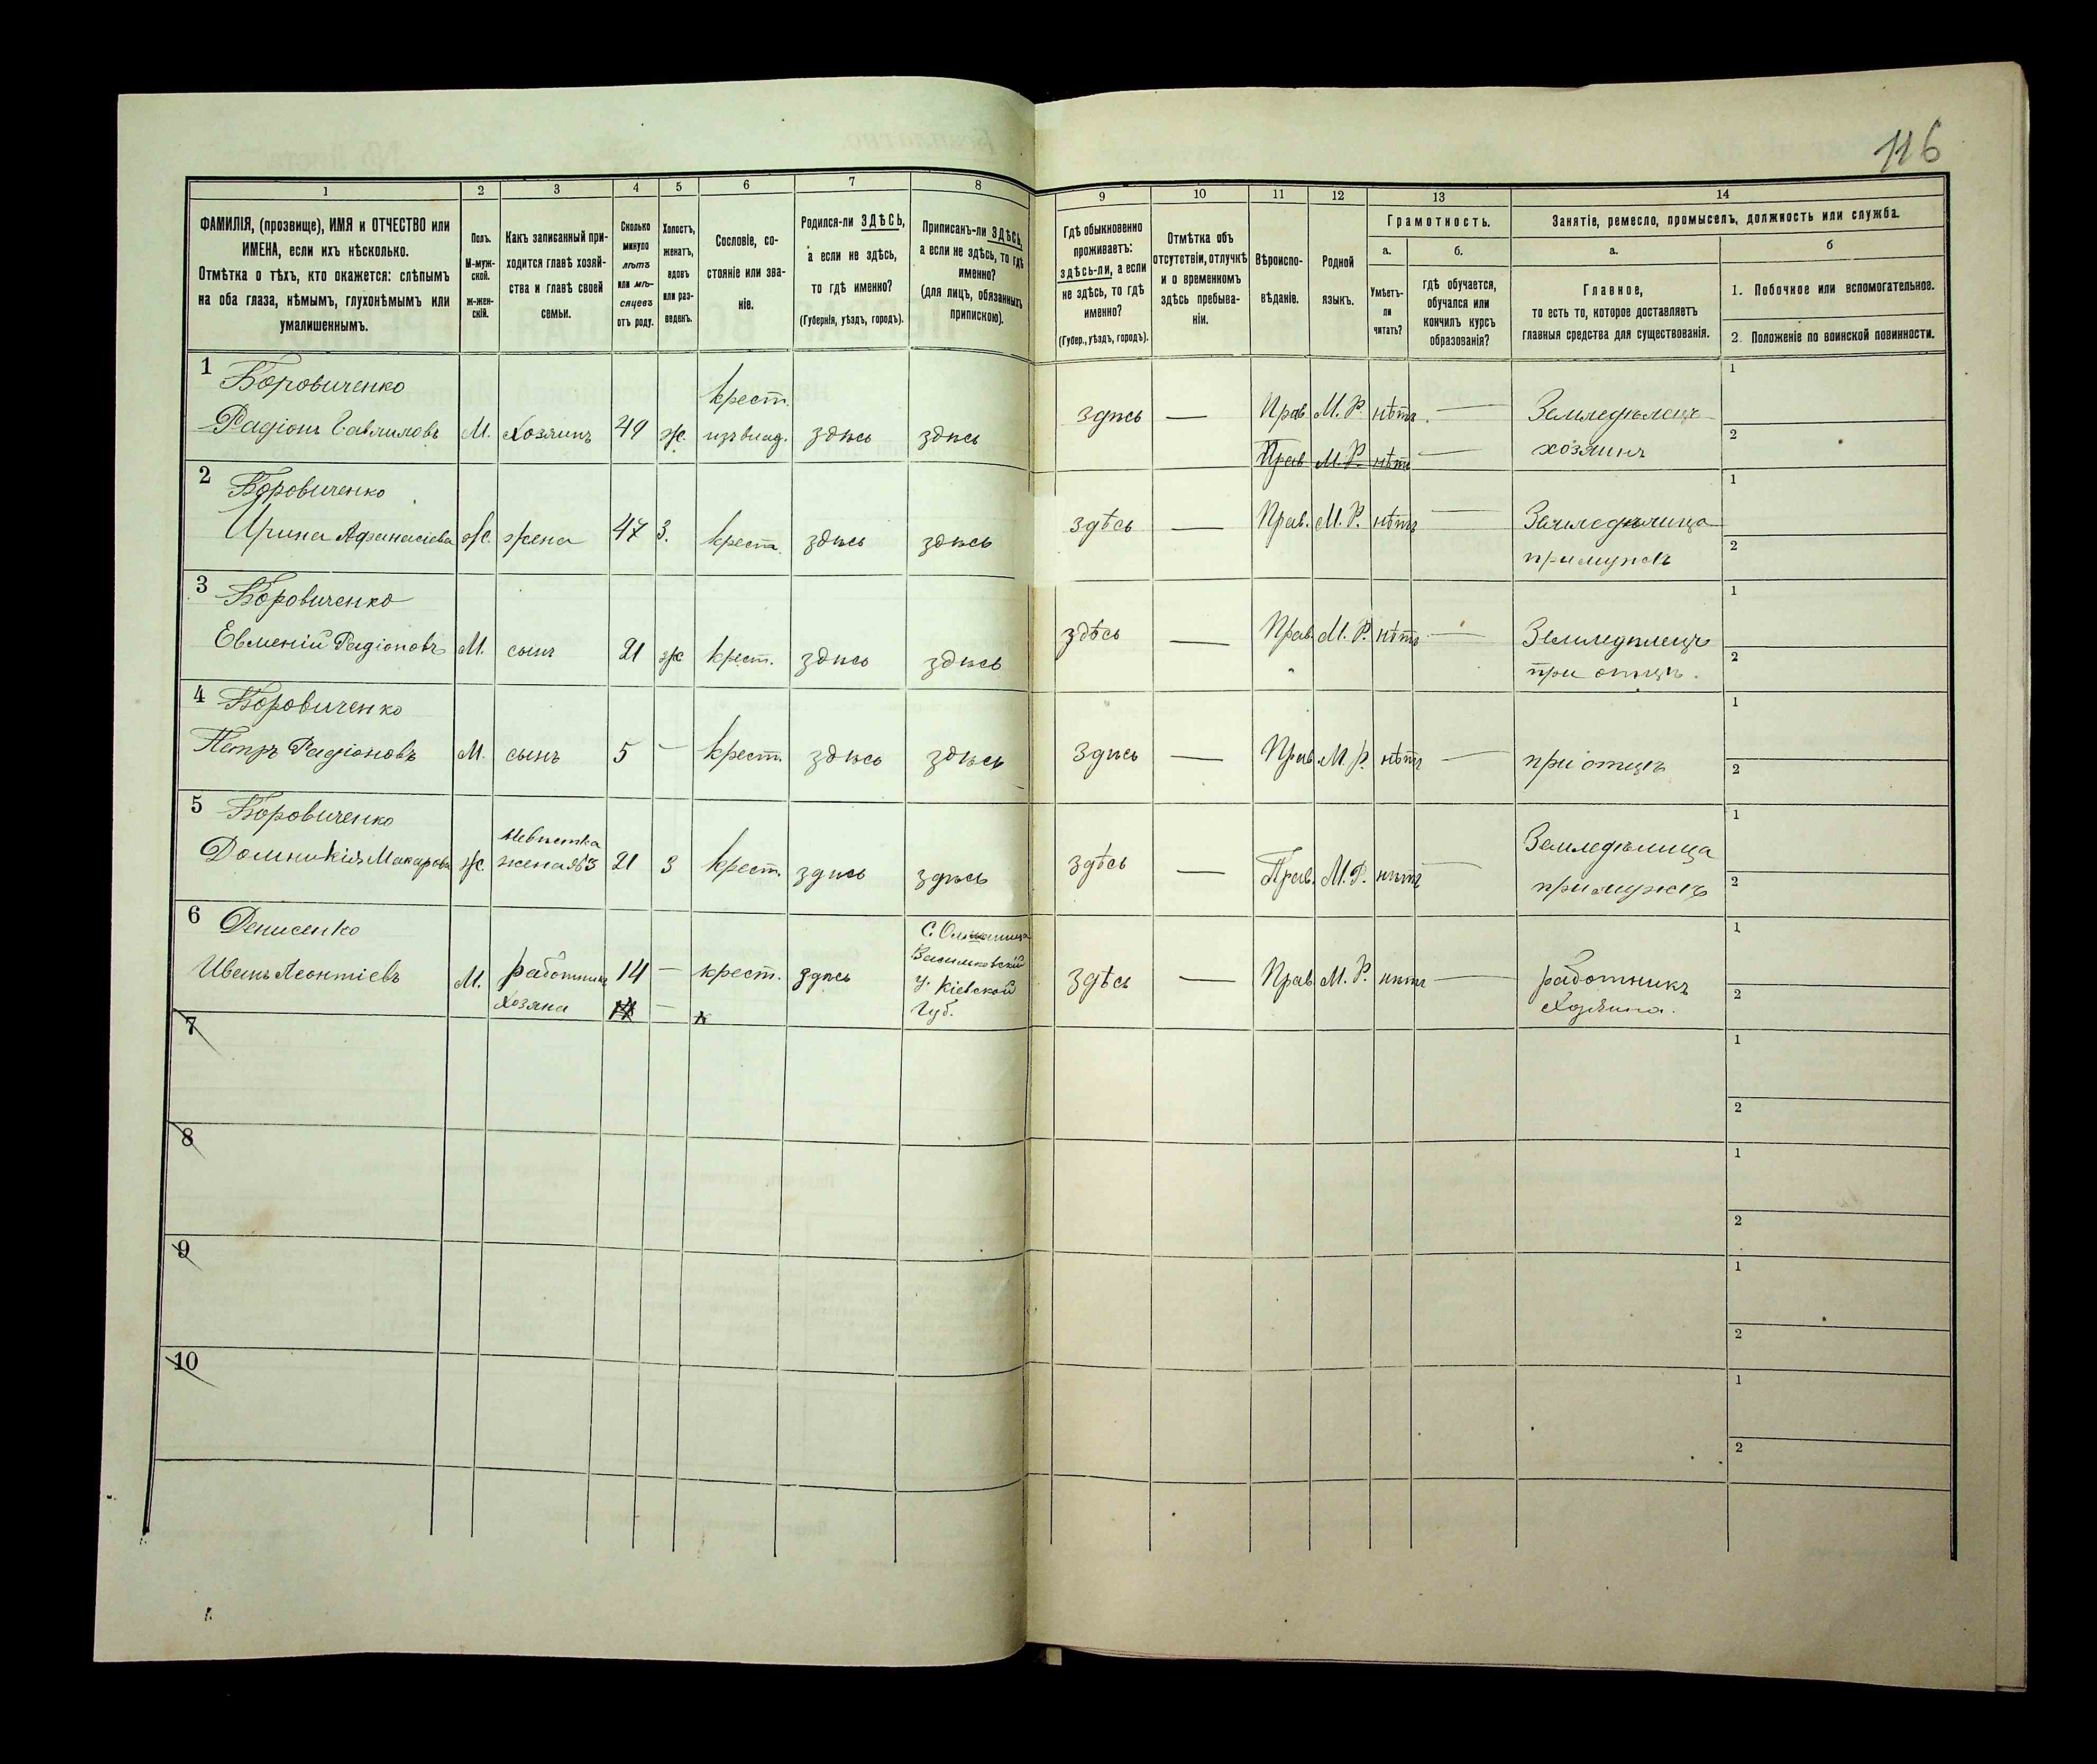 116
1 2 3 4 5 6 7 8 9 10 11 12 13 14
ФАМИЛІЯ, (прозвище), ИМЯ и ОТЧЕСТВО или
ИМЕНА, если ихъ нѣсколько.
Отмѣтка о тѣхъ, кто окажется: слѣпымъ
на оба глаза, нѣмымъ, глухонѣмымъ или
умалишеннымъ.
Полъ.
М-муж-
ской.
Ж-жен-
скій.
Какъ записанный при-
ходится главѣ хозяй-
ства и главѣ своей
семьи.
Сколько
минуло
лѣтъ
или мѣ-
сяцевъ
отъ роду.
Холостъ,
женатъ,
вдовъ
или раз-
веденъ.
Сословіе, со-
стояніе или зва-
ніе.
Родился-ли ЗДѢСЬ,
а если не здѣсь,
то гдѣ именно?
(Губернія, уѣздъ, городъ).
Приписанъ-ли ЗДѢСЬ,
а если не здѣсь, то гдѣ
именно?
(для лицъ, обязанныхъ
припискою).
Гдѣ обыкновенно
проживаетъ:
здѣсь-ли, а если
не здѣсь, то гдѣ
именно?
(Губер., уѣздъ, городъ).
Отмѣтка объ
отсутствіи, отлучкѣ
и о временномъ
здѣсь пребыва-
ніи.
Вѣроиспо-
вѣданіе.
Родной
языкъ.
Грамотность.
а.
Умѣетъ-
ли
читать?
б.
гдѣ обучается,
обучался или
кончилъ курсъ
образованія?
Занятіе, ремесло, промыселъ, должность или служба.
а.
Главное,
то есть то, которое доставляетъ
главныя средства для существованія.
б
1. Побочное или вспомогательное.
2. Положеніе по воинской повинности.
1 Боровиченко
Радіонъ Гавриловъ М. Хозяинъ 49 ж. крест.
изъ влад. здѣсь здѣсь здѣсь — Прав М. Р. нѣтъ — Земледѣлецъ
хозяинъ 1 2
Прав М. Р. нѣтъ —
2 Боровиченко
Ирина Афанасіева Ж. жена 47 З. крест. здѣсь здѣсь здѣсь — Прав. М. Р. нѣтъ — Земледѣлица
при мужѣ 1 2
3 Боровиченко
Евменій Радіоновъ М. сынъ 21 ж крест. здѣсь здѣсь здѣсь — Прав. М. Р. нѣтъ — Земледѣлецъ
при отцѣ. 1 2
4 Боровиченко
Петръ Радіоновъ М. сынъ 5 — крест. здѣсь здѣсь здѣсь — Прав М. Р. нѣтъ — при отцѣ 1 2
5 Боровиченко
Домникія Макарова Ж. Невѣстка
жена №3 21 З крест. здѣсь здѣсь здѣсь — Прав. М. Р. нѣтъ — Земледѣлица
при мужѣ 1 2
6 Денисенко
Иванъ Леонтіевъ М. работникъ
Хозяна 14 — крест. здѣсь С. Ольшаница
Васильковскій
у. Кіевской
Губ. здѣсь — Прав М. Р. нѣтъ — работникъ
Хозяина. 1 2
7 1 2
8 1 2
9 1 2
10 1 2